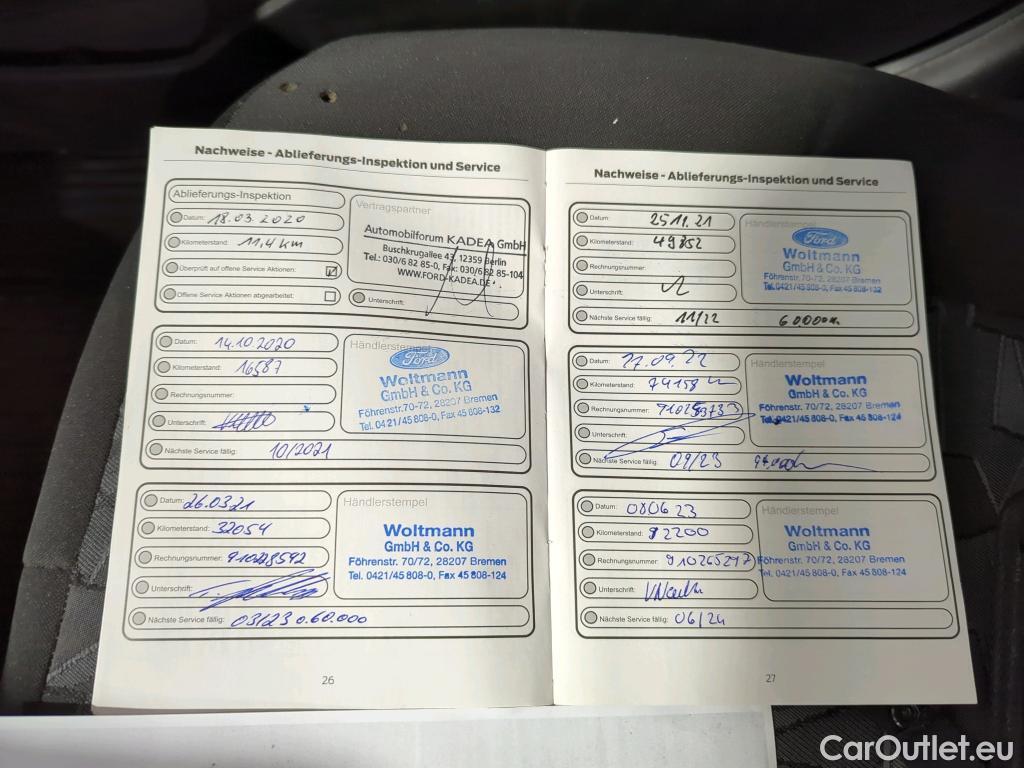 Nachweise - Ablieferungs-Inspektion und Service
Ablieferungs-Inspektion
Datum: 18.03.2020
Kilometerstand: 11,4 km
Überprüft auf offene Service Aktionen:
Offene Service Aktionen abgearbeitet:
Vertragspartner
Automobilforum KADEA GmbH
Buschkrugallee 43, 12359 Berlin
Tel.: 030/6 82 85-0, Fax: 030/6 82 85-104
WWW.FORD-KADEA.DE
Unterschrift:
Datum: 14.10.2020
Kilometerstand: 16587
Rechnungsnummer:
Unterschrift:
Nächste Service fällig: 10/2021
Händlerstempel
Ford
Woltmann
GmbH & Co. KG
Föhrenstr.70-72, 28207 Bremen
Tel. 0421/45 808-0, Fax 45 808-132
Datum: 26.03.21
Kilometerstand: 32054
Rechnungsnummer:
Unterschrift:
Nächste Service fällig: 03/23 o. 60.000
Händlerstempel
Woltmann
GmbH & Co. KG
Föhrenstr. 70/72, 28207 Bremen
Tel. 0421/45 808-0, Fax 45 808-124
26
Nachweise - Ablieferungs-Inspektion und Service
Datum: 25.11.21
Kilometerstand: 49852
Rechnungsnummer:
Unterschrift:
Nächste Service fällig: 11/22 60.000 km
Händlerstempel
Ford
Woltmann
GmbH & Co. KG
Föhrenstr. 70-72, 28207 Bremen
Tel. 0421/45 808-0, Fax 45 808-132
Datum: 27.09.22
Kilometerstand: 74158
Rechnungsnummer:
Unterschrift:
Nächste Service fällig: 09/23
Händlerstempel
Woltmann
GmbH & Co. KG
Föhrenstr. 70/72, 28207 Bremen
Tel. 0421/45 808-0, Fax 45 808-124
Datum: 08.06.23
Kilometerstand: 92200
Rechnungsnummer: 910265297
Unterschrift:
Nächste Service fällig: 06/24
Händlerstempel
Woltmann
GmbH & Co. KG
Föhrenstr. 70/72, 28207 Bremen
Tel. 0421/45 808-0, Fax 45 808-124
27
CarOutlet.eu